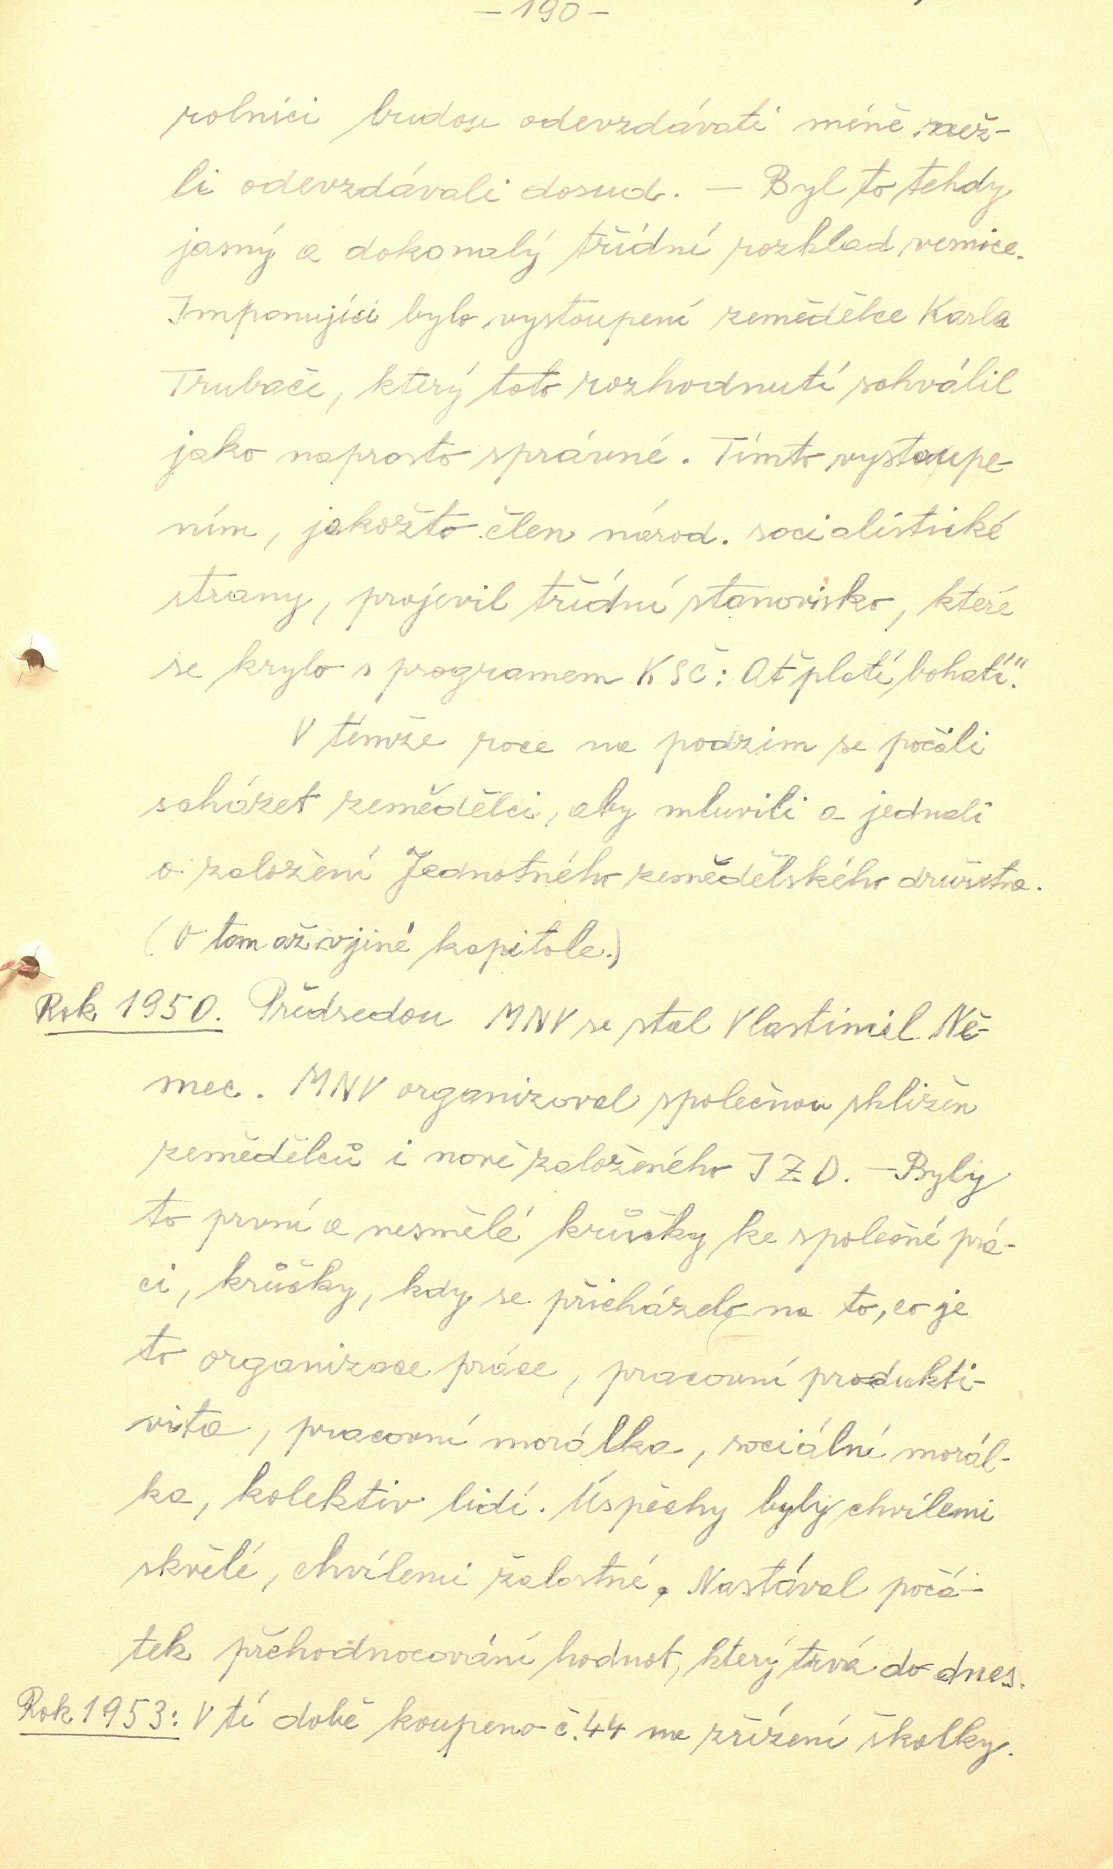 - 190 -
rolníci budou odevzdávati méně než-
li odevzdávali dosud. - Byl to tehdy
jasný a dokonalý třídní rozklad vesnice.
Imponující bylo vystoupení zemědělce Karla
Trubače, který toto rozhodnutí schválil
jako naprosto správné. Tímto vystoupe-
ním, jakožto člen národ. socialistické
strany, projevil třídní stanovisko, které
se krylo s programem KSČ: Ať platí bohatí".
V témže roce na podzim se počali
scházet zemědělci, aby mluvili a jednali
o založení Jednotného zemědělského družstva.
(O tom až v jiné kapitole.)
Rok 1950. Předsedou MNV se stal Vlastimil Ně-
mec. MNV organizoval společnou sklizeň
zemědělců i nově založeného JZD. - Byly
to první a nesmělé krůčky ke společné prá-
ci, krůčky, kdy se přicházelo na to, co je
to organizace práce, pracovní produkti-
vita, pracovní morálka, sociální morál-
ka, kolektiv lidí. Úspěchy byly chvílemi
skvělé, chvílemi žalostné. Nastával počá-
tek přehodnocování hodnot, který trvá do dnes.
Rok 1953: V té době koupeno č. 44 na zřízení školky.